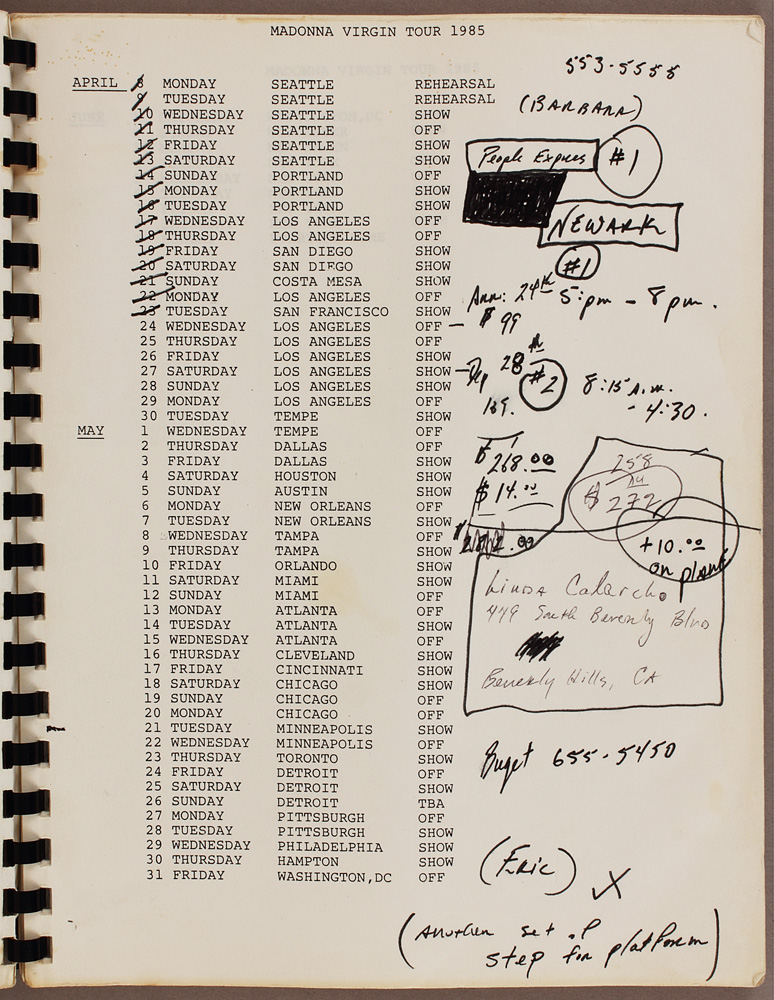 MADONNA VIRGIN TOUR 1985
APRIL 8 MONDAY SEATTLE REHEARSAL
9 TUESDAY SEATTLE REHEARSAL
10 WEDNESDAY SEATTLE SHOW
11 THURSDAY SEATTLE OFF
12 FRIDAY SEATTLE SHOW
13 SATURDAY SEATTLE SHOW
14 SUNDAY PORTLAND OFF
15 MONDAY PORTLAND SHOW
16 TUESDAY PORTLAND SHOW
17 WEDNESDAY LOS ANGELES OFF
18 THURSDAY LOS ANGELES OFF
19 FRIDAY SAN DIEGO SHOW
20 SATURDAY SAN DIEGO SHOW
21 SUNDAY COSTA MESA SHOW
22 MONDAY LOS ANGELES OFF
23 TUESDAY SAN FRANCISCO SHOW
24 WEDNESDAY LOS ANGELES OFF
25 THURSDAY LOS ANGELES OFF
26 FRIDAY LOS ANGELES SHOW
27 SATURDAY LOS ANGELES SHOW
28 SUNDAY LOS ANGELES SHOW
29 MONDAY LOS ANGELES OFF
30 TUESDAY TEMPE SHOW
MAY 1 WEDNESDAY TEMPE OFF
2 THURSDAY DALLAS OFF
3 FRIDAY DALLAS SHOW
4 SATURDAY HOUSTON SHOW
5 SUNDAY AUSTIN SHOW
6 MONDAY NEW ORLEANS OFF
7 TUESDAY NEW ORLEANS SHOW
8 WEDNESDAY TAMPA OFF
9 THURSDAY TAMPA SHOW
10 FRIDAY ORLANDO SHOW
11 SATURDAY MIAMI SHOW
12 SUNDAY MIAMI OFF
13 MONDAY ATLANTA OFF
14 TUESDAY ATLANTA SHOW
15 WEDNESDAY ATLANTA OFF
16 THURSDAY CLEVELAND SHOW
17 FRIDAY CINCINNATI SHOW
18 SATURDAY CHICAGO SHOW
19 SUNDAY CHICAGO OFF
20 MONDAY CHICAGO OFF
21 TUESDAY MINNEAPOLIS SHOW
22 WEDNESDAY MINNEAPOLIS OFF
23 THURSDAY TORONTO SHOW
24 FRIDAY DETROIT OFF
25 SATURDAY DETROIT SHOW
26 SUNDAY DETROIT TBA
27 MONDAY PITTSBURGH OFF
28 TUESDAY PITTSBURGH SHOW
29 WEDNESDAY PHILADELPHIA SHOW
30 THURSDAY HAMPTON SHOW
31 FRIDAY WASHINGTON,DC OFF
553-5555
(BARBARA)
People Express #1
NEWARK
#1
24th 5:pm - 8pm.
$99
Dep 28th #2 8:15 A.m.
- 4:30.
$268.00
$14.00
258
$272
+10.00
on plane
Linda
479 South Beverly Blvd
Beverly Hills, CA
655-5450
(Eric)
(Another set of
step for platform)